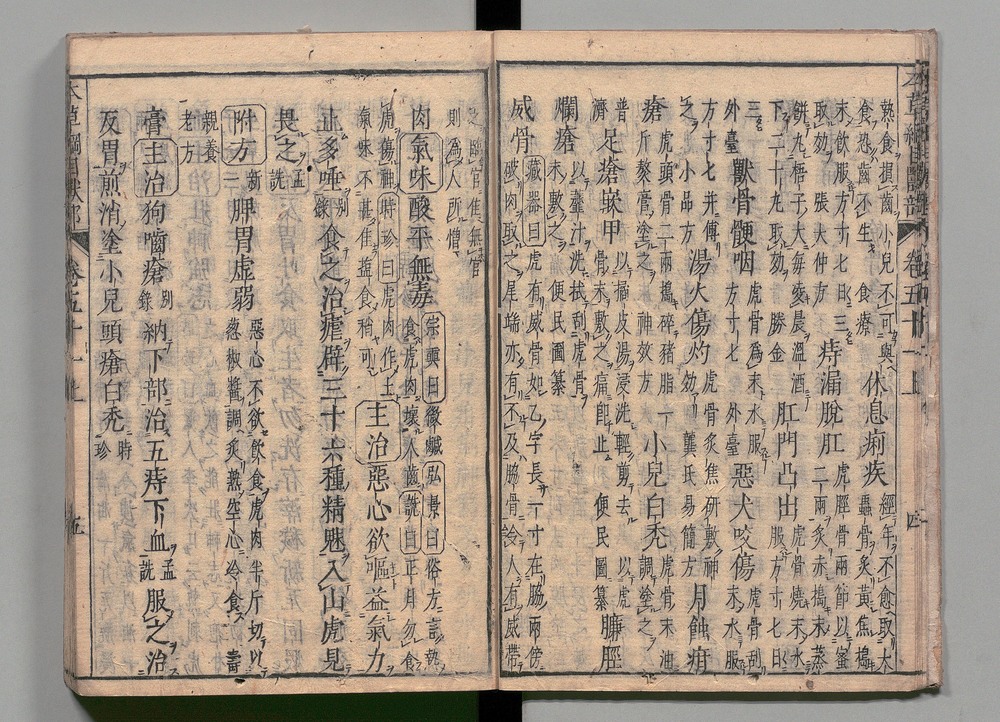 熱食損齒小兒不可與
食恐齒不生 食療
休息痢疾
經年不愈取大
蟲骨炙黃焦搗
末飲服方寸七日三
取効 張大仲方
痔漏脫肛
虎脛骨兩節以蜜
二兩炙赤搗末蒸
餅丸梧子大每凌晨溫酒
下二十丸取効 勝金
肛門凸出
虎骨燒末水
服方寸七日
三 外臺
獸骨骾咽
虎骨爲末水服
方寸七 外臺
惡犬咬傷
虎骨刮
末水服
方寸七并傅
之 小品方
湯火傷灼
虎骨炙焦研敷神
効 龔氏易簡方
月蝕疳
瘡
虎頭骨二兩搗碎豬脂一
斤熬膏塗之 神效方
小兒白禿
虎骨末油
調塗之
普
濟
足瘡嵌甲
以橘皮湯浸洗輕剪去
骨末敷之痛即止 便民圖纂
臁脛
爛瘡
以虀汁洗拭刮虎骨
末敷之 便民圖纂
威骨
藏器曰虎有威骨如乙字長一寸在脇兩傍
破肉取之尾端亦有不及脇骨令人有威帶
之臨官佳無官
則為人所憎
肉氣味酸平無毒
宗奭曰微鹹弘景曰俗方言熱
食虎肉壞人齒詵曰正月勿食
虎傷神時珍曰虎肉作土
氣味不甚佳鹽食稍可
主治惡心欲嘔益氣力
止多唾別錄食之治瘧辟三十六種精魅入山虎見
畏之孟詵
附方新二
脾胃虛弱
惡心不欲飲食虎肉半斤切以
蔥椒醬調炙熟空心冷食 壽
親養
老方
膏主治狗嚙瘡別錄納下部治五痔下血孟詵服之治
反胃煎消塗小兒頭瘡白禿時珍